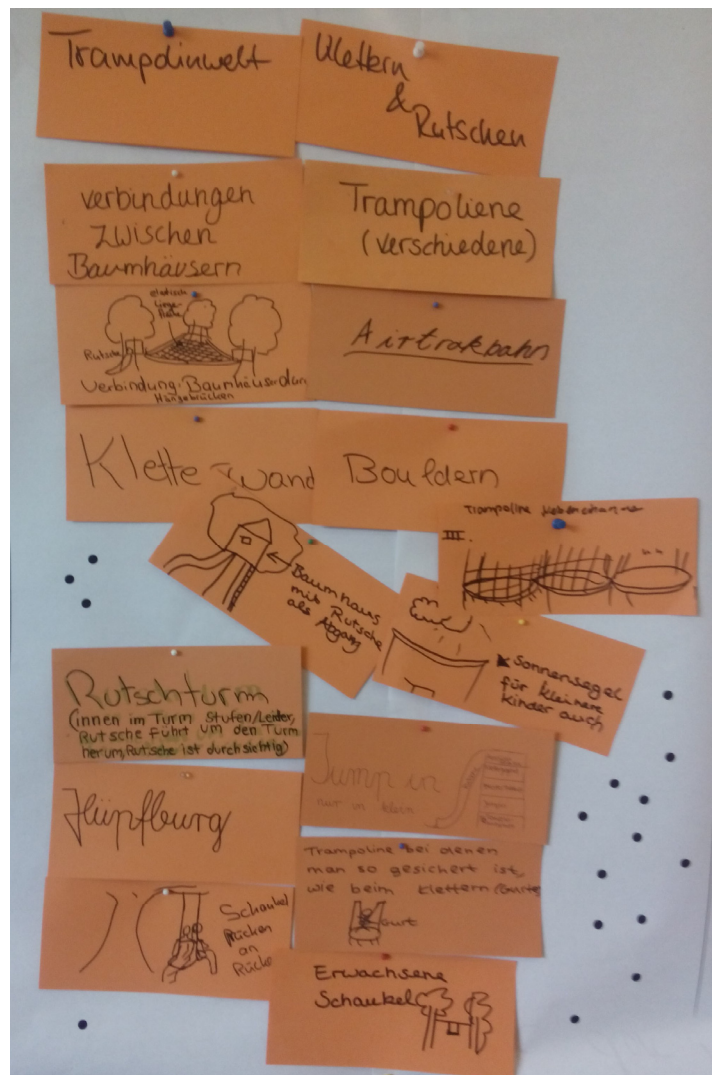 Trampolinwelt
Klettern
&
Rutschen
verbindungen
zwischen
Baumhäusern
Trampoliene
(verschiedene)
elastische
Liege-
fläche
Rutsche
Verbindung: Baumhäuser durch
Hängebrücken
Airtrakbahn
Kletterwand
Bouldern
Baumhaus
mit Rutsche
als Abgang
Trampoline
III.
Sonnensegel
für kleinere
Kinder auch
Rutschturm
(innen im Turm Stufen/Leider,
Rutsche führt um den Turm
herum, Rutsche ist durchsichtig)
Jump in
nur in klein
Hüpfburg
Trampoline bei denen
man so gesichert ist,
wie beim klettern (Gurte)
Gurt
Schaukel
Rücken
an
Rücken
Erwachsene
Schaukel